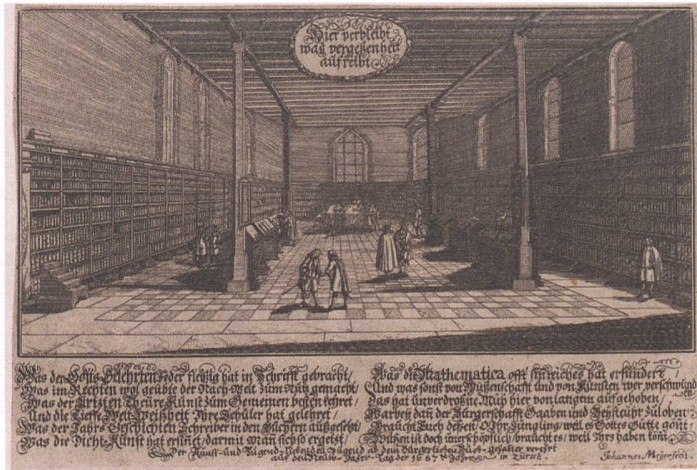 Hier verbleibt
was vergeßenheit
aufreibt
Was der Gotts-Gelehrten Feder fleißig hat in Schrifft gebracht,
Was im Rechten wol geübte der Nach-Welt zum Nuz gemacht,
Was der Ärzten Edle Kunst zum Gemeinen besten kehret,
Und die Tieffe Welt-Weißheit Ihre Schüler hat gelehret,
Was der Jahrs Geschichten Schreiber in den Büchern aufgesezt,
Was die Dicht-Kunst hat ersinet, darmit Man sich so ergezt,
Was die Mathematica offt sinreiches hat erfunden,
Und was sonst von Wüßenschafft und von Künsten wer verschwunden
Das hat unverdroßne Müh hier von langem aufgehoben,
Warbey dann der Bürgerschafft Gaaben und Beysteuhr zuloben:
Braucht Euch deßen, O Ihr Jüngling, weil es Gottes Gütte gönt,
Wüßen ist doch unerschöpflich, braucht es, weil Ihrs haben könt.
Der Kunst- und Tugend-liebenden Jugend ab dem Bürgerlichen Büch-gehalter verehrt
auf den Neüw-Jahr-Tag des 1687 Jahres in Zürich.
Johannes Meyer fecit.